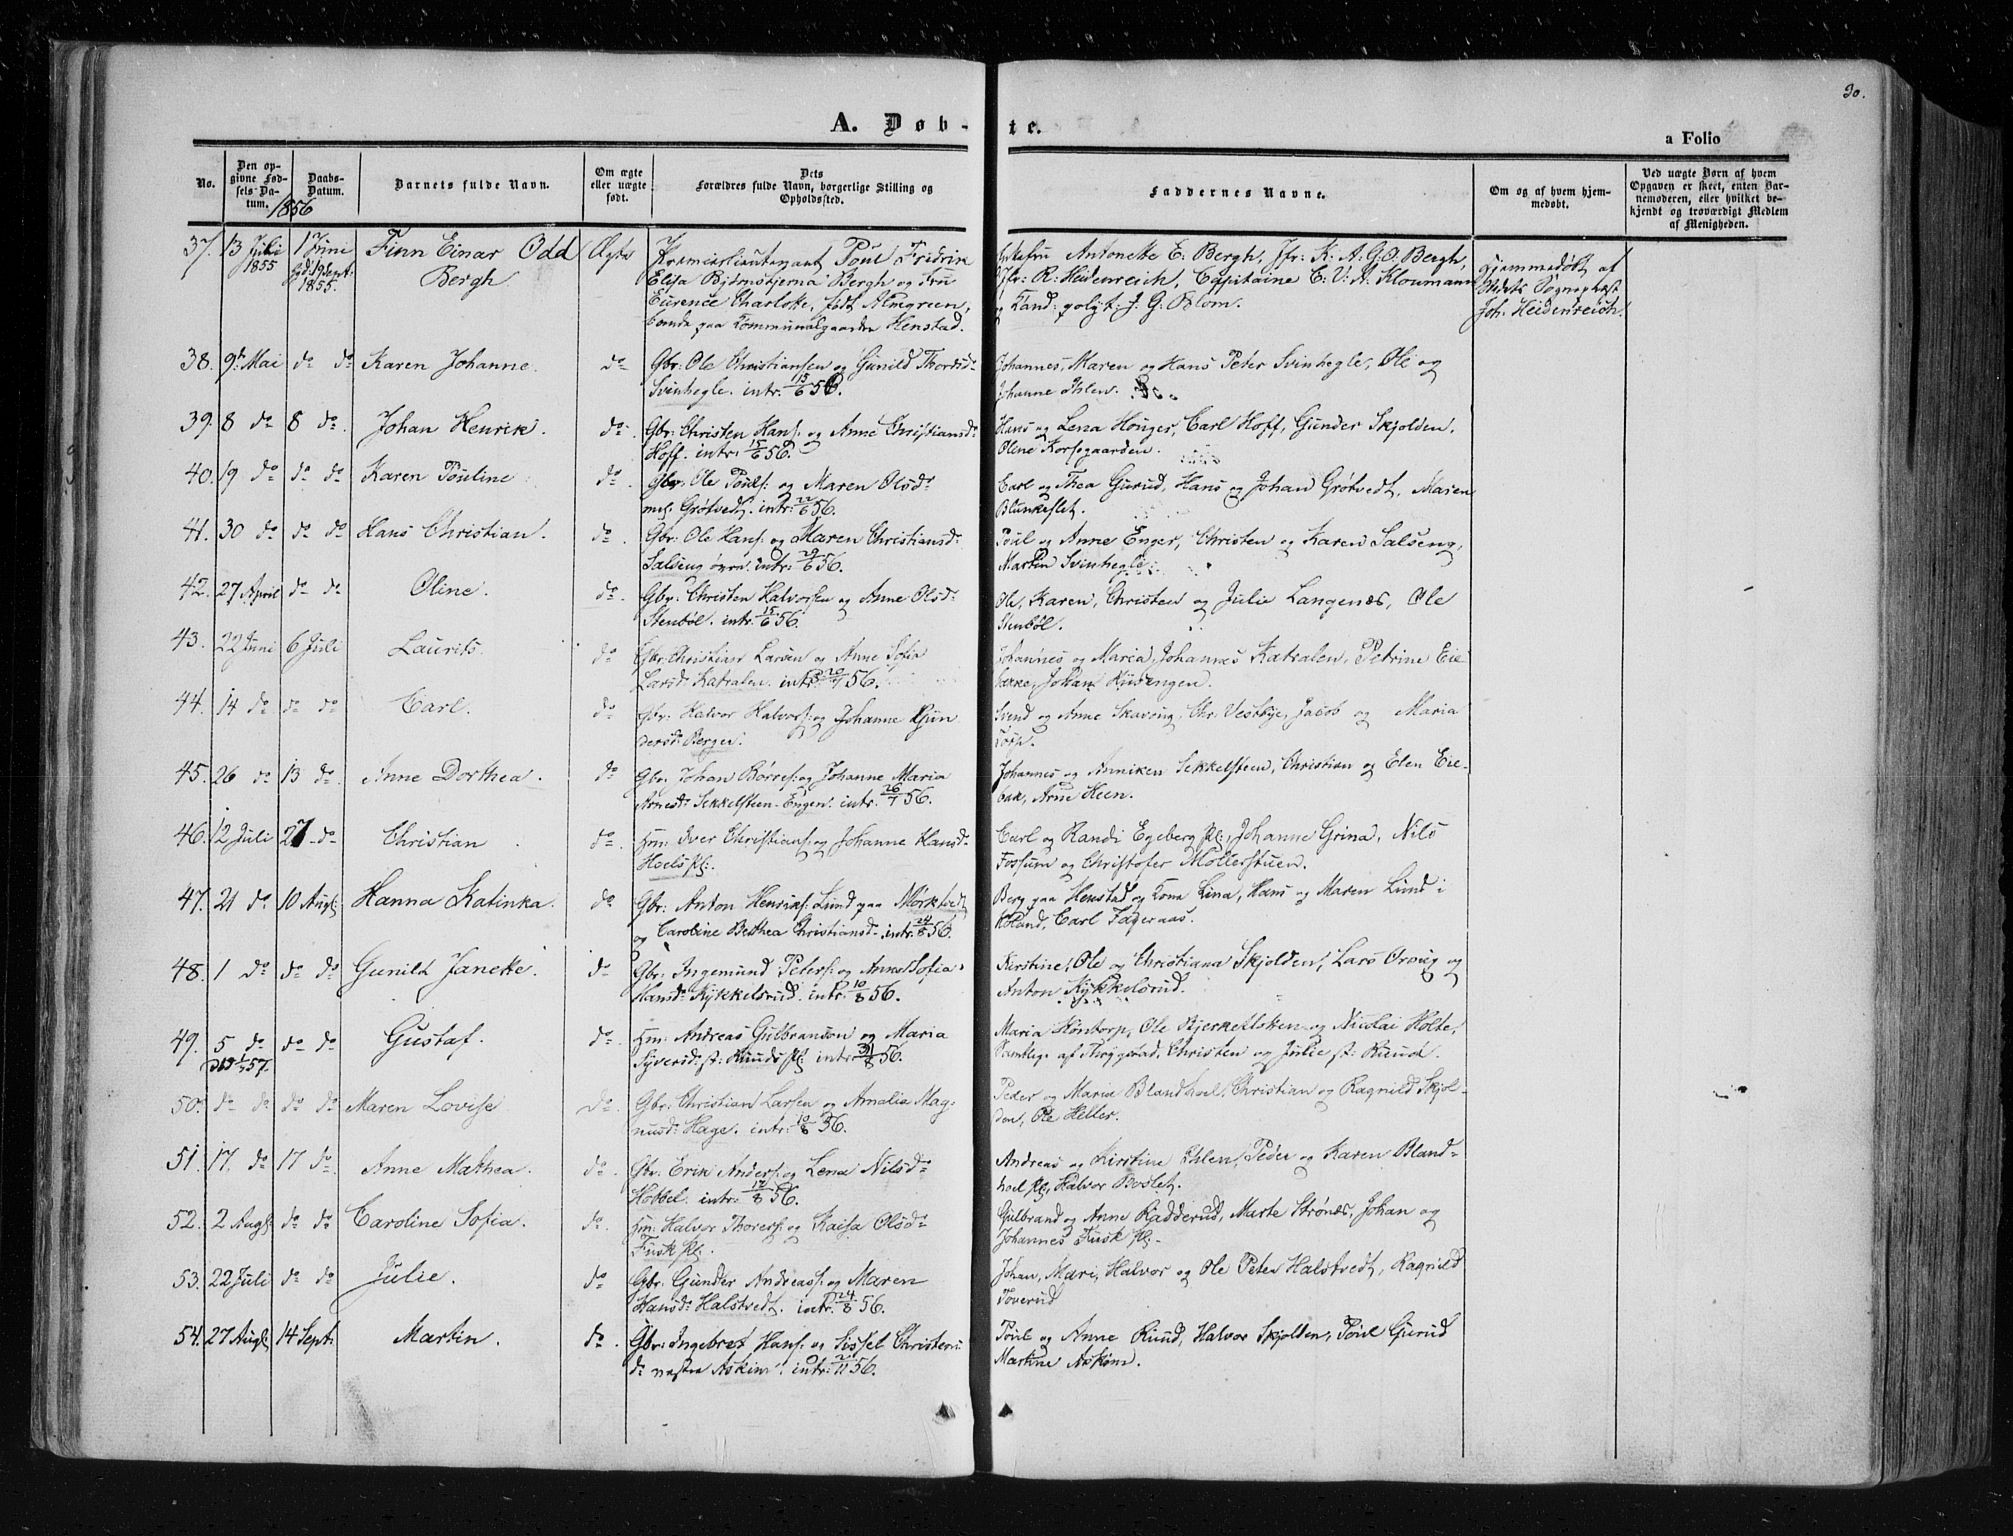 30.
A. Døb-
te.
a Folio
No.
Den op-
givne Fød-
sels-Da-
tum.
Daabs-
Datum.
1856
Barnets fulde Navn.
Om ægte
eller uægte
født.
Dets
Forældres fulde Navn, borgerlige Stilling og
Opholdssted.
Faddernes Navne.
Om og af hvem hjem-
medøbt.
Ved uægte Børn af hvem
Opgaven er skeet, enten Bar-
nemoderen, eller hvilket be-
kjendt og troværdigt Medlem
af Menigheden.
37. 13 Juli 1855 1 Juni Finn Einar Odd Bergh Ægte
Premierlieutenant Poul Fridrik
Elisa Bjørnstjerna Bergh og Fru
Eurence Charlotte, født Almgreen,
boende paa Communalgaarden Henstad.
Antonette E. Bergh, Jfr: K. A. G. O. Bergh,
Jfr: R. Heidenreich, Capitaine C. V. A. Kloumann
og Cand: polyt: J. G. Blom.
Hjemmedøbt af
Stedets Sognepræst
Joh. Heidenreich.
38. 9de Mai do do Karen Johanne. do
Gbr: Ole Christiansen og Gunild Thordsd:
Svinhegle. intr. 15/6 56.
Johannes, Maren og Hans Peter Svinhegle, Ole og
Johanne Ihlen.
39. 8 do 8 do. Johan Henrik. do.
Gbr: Christen Hans: og Anne Christiansd:
Hoff. intr: 15/6 56.
Hans og Lena Honger, Carl Hoff, Gunder Skjolden,
Olene Korsegaarden.
40. 19 do do do Karen Pouline do.
Gbr: Ole Pouls: og Maren Olsd:
Grøtvedt. intr: 22/6 56.
Carl og Thea Gurud, Hans og Johan Grøtvedt, Maren
Blunkeslet.
41. 30 do do do Hans Christian. do.
Gbr: Ole Hans: og Maren Christiansd:
Salseng øvre. intr: 29/6 56.
Poul og Anne Enger, Christen og Karen Salseng,
Martin Svinhegle.
42. 27 April do do Oline. do.
Gbr: Christen Halvorsen og Anne Olsd:
Stenbøl. intr. 15/6 56.
Ole, Karen, Christen og Julie Langenæs, Ole
Stenbøl.
43. 22 Juni 6 Juli Laurits. do
Gbr: Christian Larsen og Anne Sofia
Larsd: Katralen. intr: 20/7 56.
Johannes og Maria, Johannes Katralen, Petrine Eie
bække, Johan
44. 14 do do do Carl. do
Gbr: Halvor Halvors: og Johanne Gun
dersd: Berger.
Svend og Anne Skavong, Chr. Vestbye, Jacob og Maria
Torp.
45. 26 do 13 do. Anne Dorthea. do
Gbr: Johan Børres: og Johanne Maria
Arnesd: Sekkelsteen-Engen. intr. 26/7 56.
Johannes og Anniken Sekkelsteen, Christian og Elen Eie-
bak, Arne Heen.
46. 12 Juli 27 do Christian do.
Hm: Iver Christians: og Johanne Hansd:
Hoels Pl:
Carl og Randi Egeberg Pl:, Johanne Grina, Nils
Fossum og Christofer Møllerstuen.
47. 21 do 10 Augs: Hanna Katinka. do
Gbr: Anton Henriks: Lund paa Mørktvedt
og Caroline Bethea Christiansd: intr: 24/8 56.
Berg paa Henstad og Kona Lina, Hans og Maren Lund i
Høland, Carl Fageraas.
48. 1 do do do Gunild Janette. do
Gbr: Ingemund Peters: og Anne Sofia
Hansd: Kykkelsrud. intr: 10/8 56.
Kirstine, Ole og Christiana Skjolden, Lars Ovsig og
Anton Kykkelsrud.
49. 5 do do do Gustaf. do.
1/57.
Hm: Andreas Gulbranson og Maria
Syversd: st: Ruuds Pl: intr: 31/8 56.
Maria Hontorp, Ole Bjerkeslitten og Nicolai Holte,
samtlige af Thrygstad, Christen og Julie st: Ruud.
50. do do do do Maren Lovise do.
Gbr: Christian Larsen og Amalia Mag-
nusd: Hage. intr: 10/8 56.
Peder og Maria Blandhoel, Christian og Ragnild Skjol-
den, Ole Heller.
51. 17. do 17 do. Anne Mathea. do.
Gbr: Erik Anders: og Lena Nilsd:
Hobbel. intr: 17/8 56.
Andreas og Kirstine Ihlen, Peder og Karen Bland-
hoel Pl:, Halvor Boslet.
52. 2 Augs: do do Caroline Sofia. do.
Hm: Halvor Thorers: og Kaisa Olsd:
Fusk Pl:.
Gulbrand og Anne Radderud, Marte Strønes, Johan og
Johannes Fusk Pl:
53. 22 Juli do do Julie. do
Gbr: Gunder Andreas: og Maren
Hansd: Halstvedt. intr: 24/8 56.
Johan, Mari, Halvor og Ole Peter Halstvedt, Ragnild
Toverud
54. 27 Augs: 14 Sept: Martin. do.
Gbr: Ingebret Hans: og Sissel Christens:
d: nestre Askim. intr: 2/11 56.
Poul og Anne Ruud, Halvor Skjolden, Poul Gurud
Martine Askim.